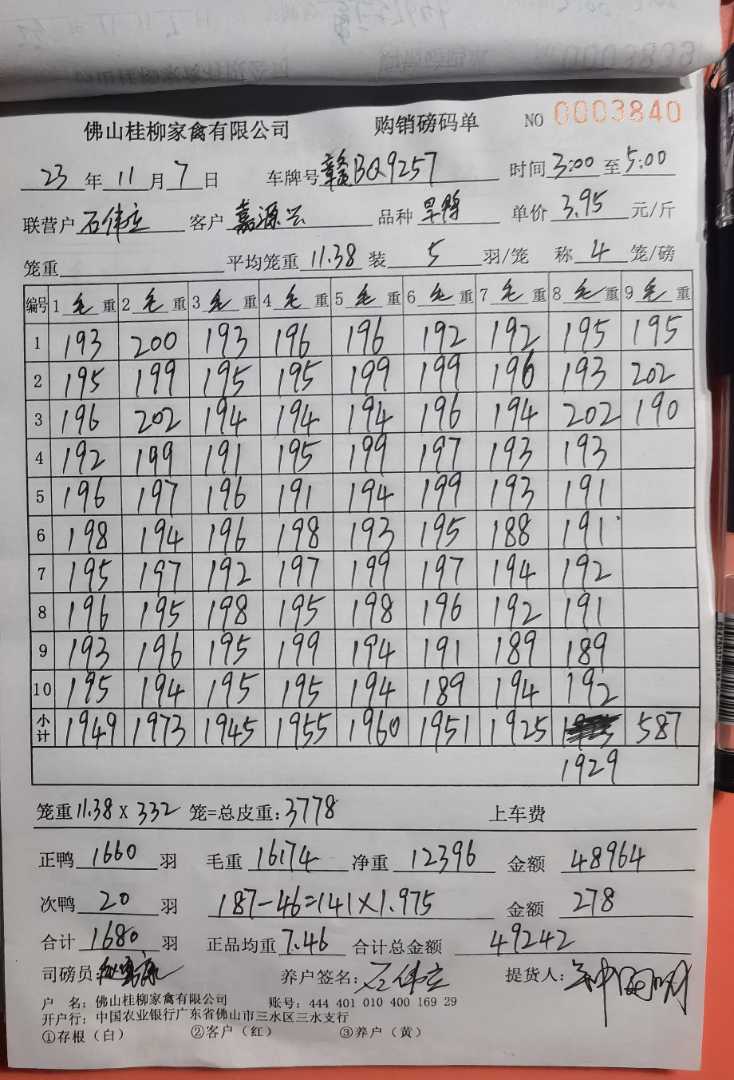 佛山桂柳家禽有限公司 购销磅码单 NO 0003840
23 年 11 月 7 日 车牌号 赣BQ9257 时间 3:00 至 5:00
联营户 石伟立 客户 嘉源兴 品种 旱鸭 单价 3.95 元/斤
笼重 平均笼重 11.38 装 5 羽/笼 称 4 笼/磅
编号 1 毛 重 2 毛 重 3 毛 重 4 毛 重 5 毛 重 6 毛 重 7 毛 重 8 毛 重 9 毛 重
1 193 200 193 196 196 192 192 195 195
2 195 199 195 195 199 199 196 193 202
3 196 202 194 194 194 196 194 202 190
4 192 199 191 195 199 197 193 193
5 196 197 196 191 194 199 193 191
6 198 194 196 198 193 195 188 191
7 195 197 192 197 199 197 194 192
8 196 195 198 195 198 196 192 191
9 193 196 195 199 194 191 189 189
10 195 194 195 195 194 189 194 192
小计 1949 1973 1945 1955 1960 1951 1925 587
1929
笼重 11.38 X 332 笼=总皮重: 3778 上车费
正鸭 1660 羽 毛重 16174 净重 12396 金额 48964
次鸭 20 羽 187-46=141×1.975 金额 278
合计 1680 羽 正品均重 7.46 合计总金额 49242
司磅员: 养户签名: 石伟立 提货人:
户 名: 佛山桂柳家禽有限公司 账号: 444 401 010 400 169 29
开户行: 中国农业银行广东省佛山市三水区三水支行
①存根（白） ②客户（红） ③养户（黄）